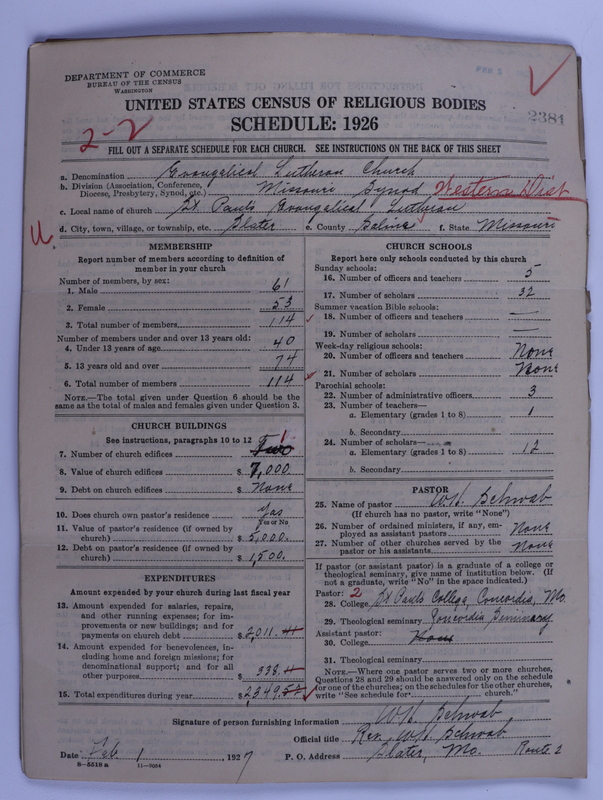 DEPARTMENT OF COMMERCE
BUREAU OF THE CENSUS
WASHINGTON
FEB 5
2381
UNITED STATES CENSUS OF RELIGIOUS BODIES
SCHEDULE: 1926
2-2
FILL OUT A SEPARATE SCHEDULE FOR EACH CHURCH. SEE INSTRUCTIONS ON THE BACK OF THIS SHEET
a. Denomination Evangelical Lutheran Church
b. Division (Association, Conference, Diocese, Presbytery, Synod, etc.) Missouri Synod Western Dist
c. Local name of church St Pauls Evangelical Lutheran
d. City, town, village, or township, etc. Slater e. County Saline f. State Missouri
MEMBERSHIP
Report number of members according to definition of member in your church
Number of members, by sex:
1. Male 61
2. Female 53
3. Total number of members 114
Number of members under and over 13 years old:
4. Under 13 years of age 40
5. 13 years old and over 74
6. Total number of members 114
NOTE.—The total given under Question 6 should be the same as the total of males and females given under Question 3.
CHURCH BUILDINGS
See instructions, paragraphs 10 to 12
7. Number of church edifices Two 1
8. Value of church edifices $ 7,000
9. Debt on church edifices $ None
10. Does church own pastor's residence Yas
Yes or No
11. Value of pastor's residence (if owned by church) $ 5,000.
12. Debt on pastor's residence (if owned by church) $ 1,500.
EXPENDITURES
Amount expended by your church during last fiscal year
13. Amount expended for salaries, repairs, and other running expenses; for improvements or new buildings; and for payments on church debt $ 2,011.41
14. Amount expended for benevolences, including home and foreign missions; for denominational support; and for all other purposes 338.11
15. Total expenditures during year $ 2,349.52
CHURCH SCHOOLS
Report here only schools conducted by this church
Sunday schools:
16. Number of officers and teachers 5
17. Number of scholars 32
Summer vacation Bible schools:
18. Number of officers and teachers —
19. Number of scholars —
Week-day religious schools:
20. Number of officers and teachers None
21. Number of scholars None
Parochial schools:
22. Number of administrative officers 3
23. Number of teachers—
a. Elementary (grades 1 to 8) 1
b. Secondary
24. Number of scholars—
a. Elementary (grades 1 to 8) 12
b. Secondary
PASTOR
25. Name of pastor W.H. Schwab
(If church has no pastor, write "None")
26. Number of ordained ministers, if any, employed as assistant pastors None
27. Number of other churches served by the pastor or his assistants None
If pastor (or assistant pastor) is a graduate of a college or theological seminary, give name of institution below. (If not a graduate, write "No" in the space indicated.)
Pastor: 2
28. College St Pauls College, Concordia, Mo.
29. Theological seminary Concordia Seminary
Assistant pastor:
30. College None
31. Theological seminary
NOTE.—Where one pastor serves two or more churches, Questions 28 and 29 should be answered only on the schedule for one of the churches; on the schedules for the other churches, write "See schedule for church."
Signature of person furnishing information W.H. Schwab
Official title Rev. W.H. Schwab
Date Feb 1, 1927 P. O. Address Slater, Mo. Route 2
8—5518 a 11—9034